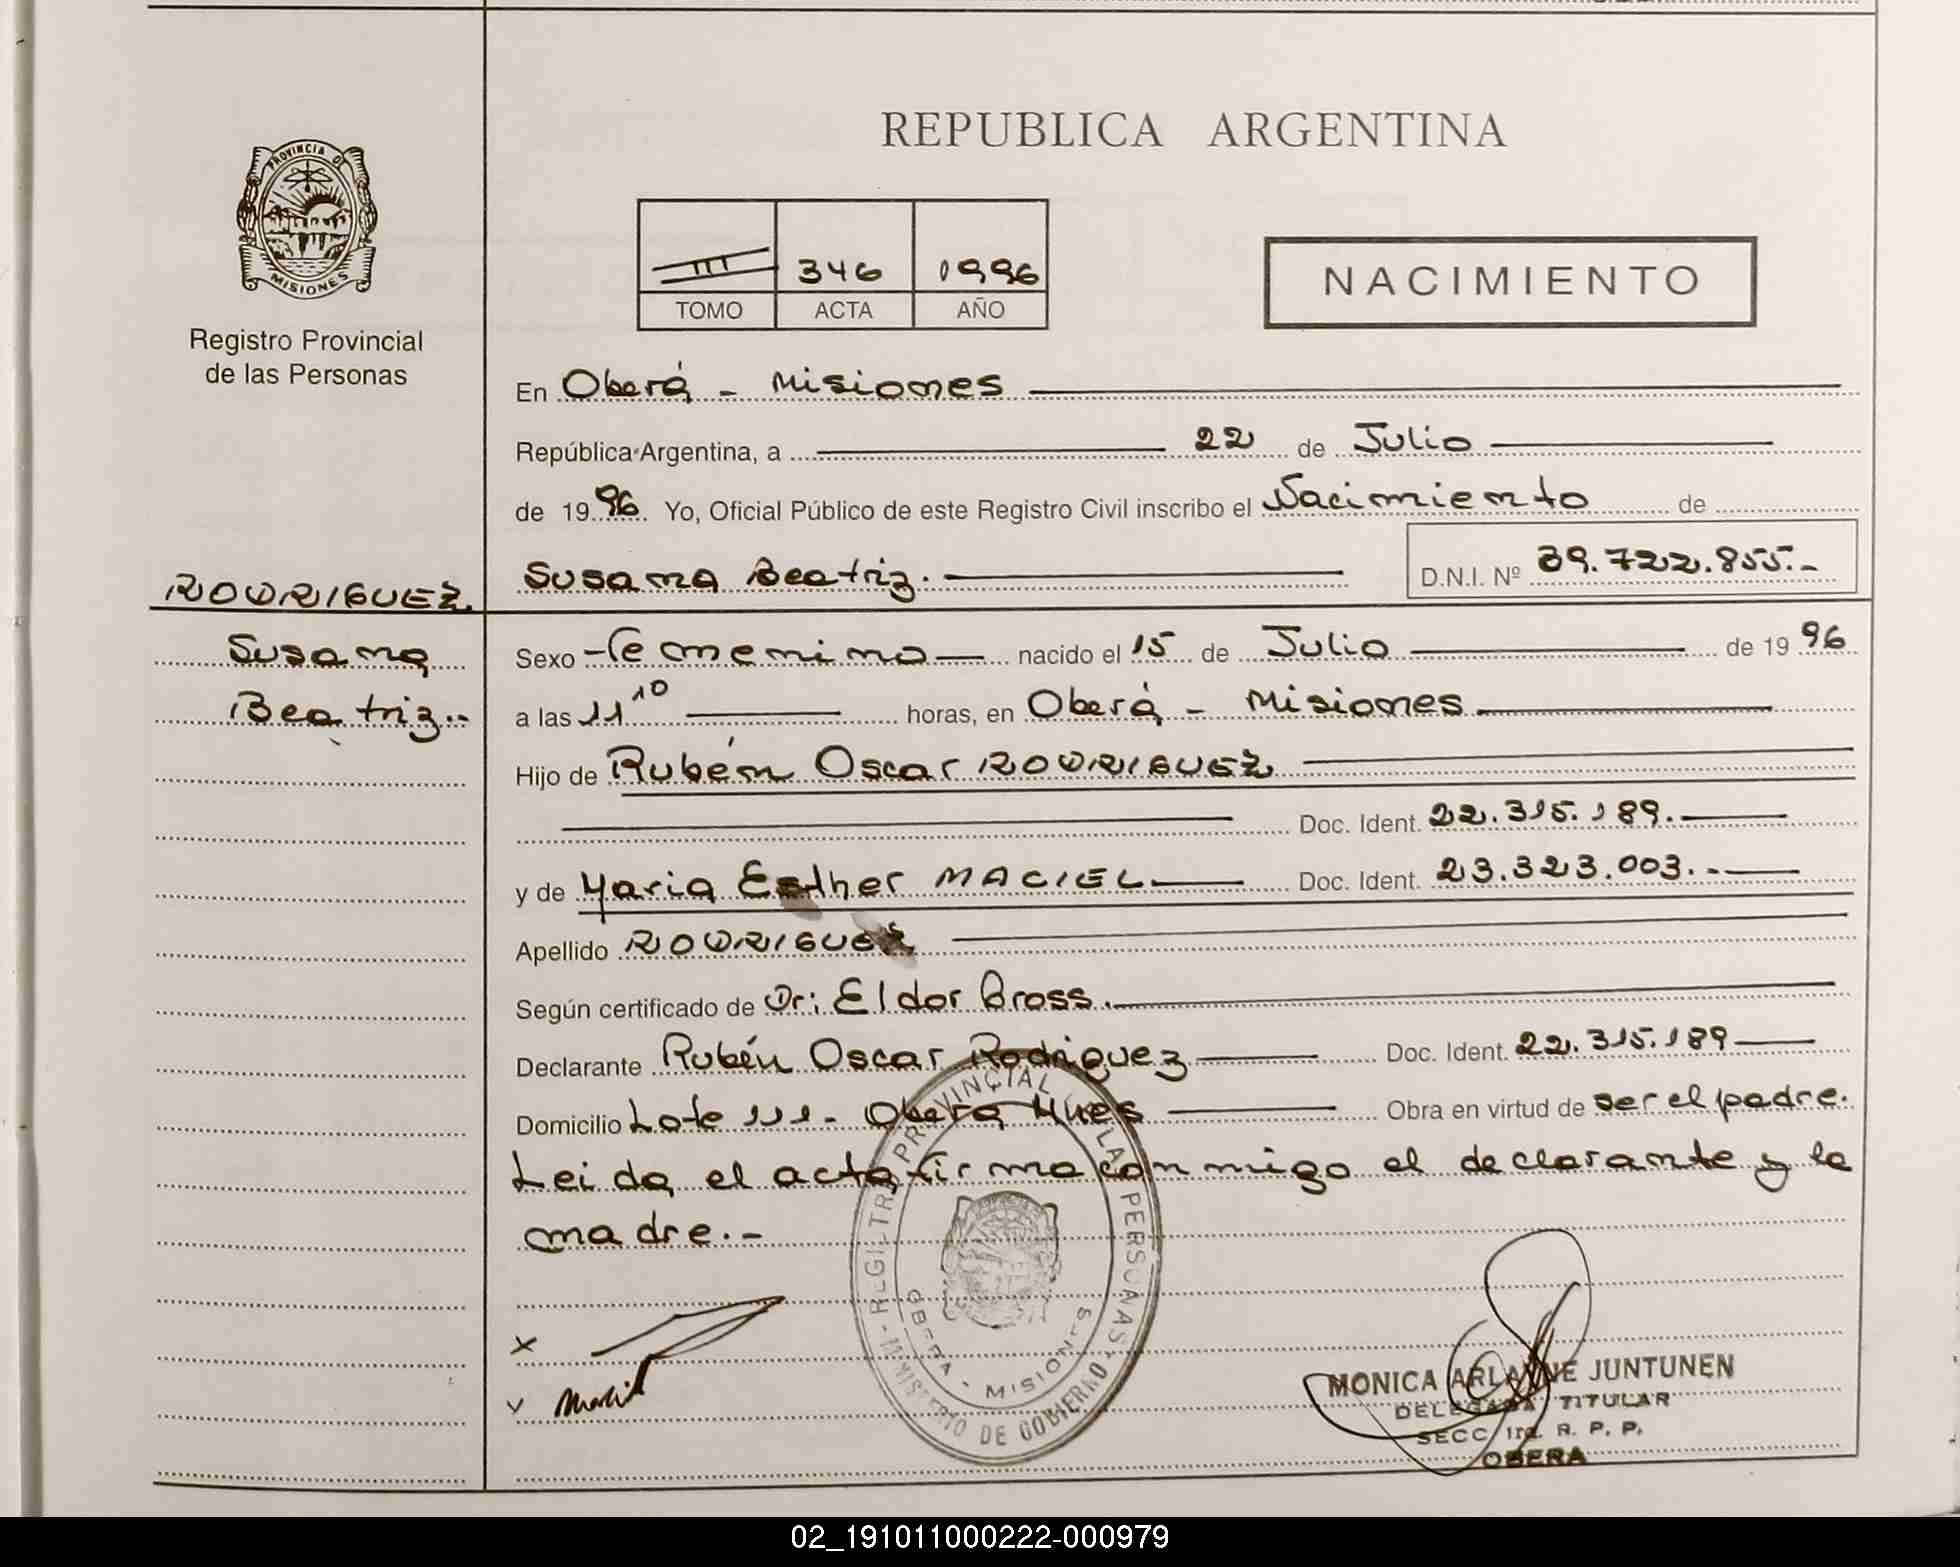 REPUBLICA ARGENTINA
PROVINCIA DE
MISIONES
Registro Provincial
de las Personas
III 346 1996
TOMO ACTA AÑO
NACIMIENTO
En Oberá - Misiones
República Argentina, a 22 de Julio
de 1996 Yo, Oficial Público de este Registro Civil inscribo el Nacimiento de
Susana Beatriz. D.N.I. Nº 39.722.855.-
RODRIGUEZ
Susana
Beatriz.-
Sexo Femenino nacido el 15 de Julio de 1996
a las 11 10 horas, en Oberá - Misiones
Hijo de Rubén Oscar RODRIGUEZ
Doc. Ident. 22.315.189.
y de Maria Esther MACIEL Doc. Ident. 23.323.003.-
Apellido RODRIGUEZ
Según certificado de Dr: Eldor Bross.
Declarante Rubén Oscar Rodriguez Doc. Ident. 22.315.189
Domicilio Lote 111- Oberá Mnes Obra en virtud de ser el padre.
Leida el acta firma conmigo el declarante y la
madre.-
REGISTRO PROVINCIAL DE LAS PERSONAS
MINISTERIO DE GOBIERNO
OBERA - MISIONES
MONICA ARLANNE JUNTUNEN
DELEGADA TITULAR
SECC. 1ra. R. P. P.
OBERA
02_191011000222-000979